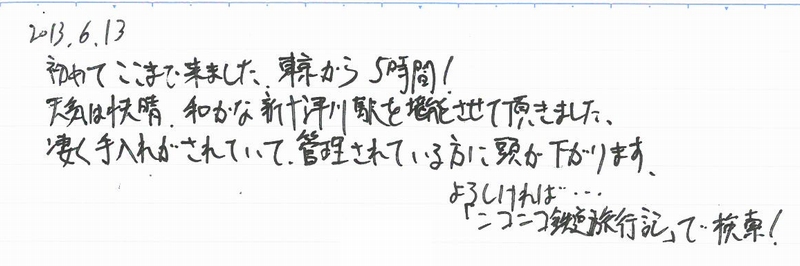 2013.6.13
初めてここまで来ました、東京から5時間!
天気は快晴、和かな新十津川駅を堪能させて頂きました、
凄く手入れがされていて、管理されている方に頭が下がります、
よろしければ・・・
「ニコニコ鉄道旅行記」で検索!